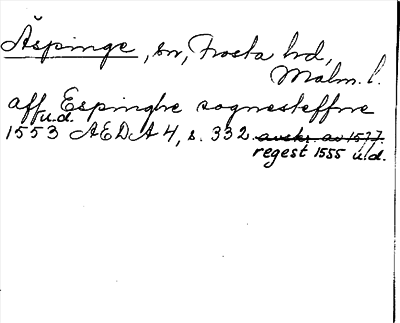 Äspinge, sn, Frosta hd,
Malm. l.
aff Espinghe sognesteffne
u.d.
1553 AEDA 4, s. 332. avskr. av 1577.
regest 1555 u.d.